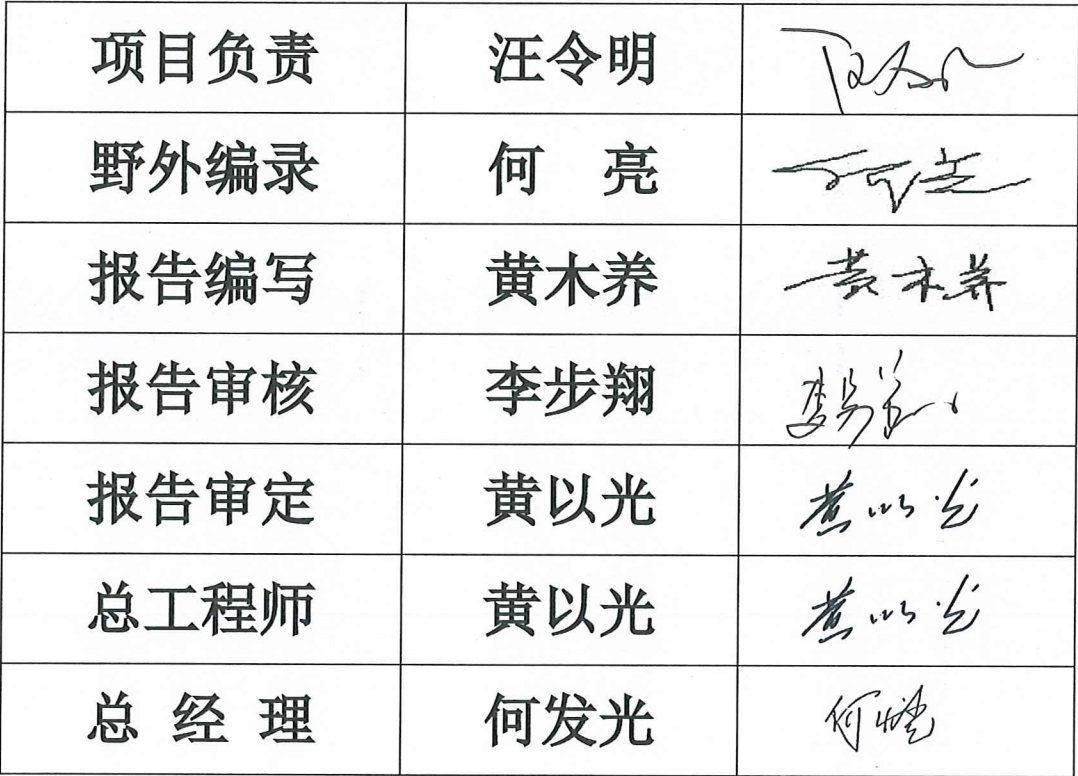 项目负责 汪令明
野外编录 何 亮 何亮
报告编写 黄木养 黄木养
报告审核 李步翔
报告审定 黄以光 黄以光
总工程师 黄以光 黄以光
总 经 理 何发光